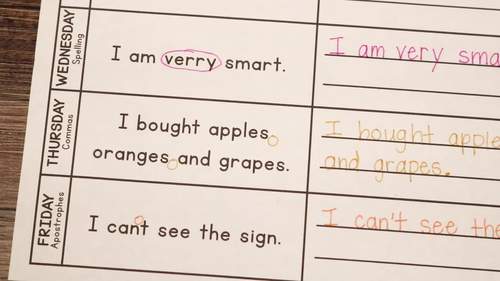 WEDNESDAY
Spelling
I am verry smart.
I am very sma
THURSDAY
Commas
I bought apples
oranges and grapes.
I bought apple
and grapes.
FRIDAY
Apostrophes
I cant see the sign.
I can't see the